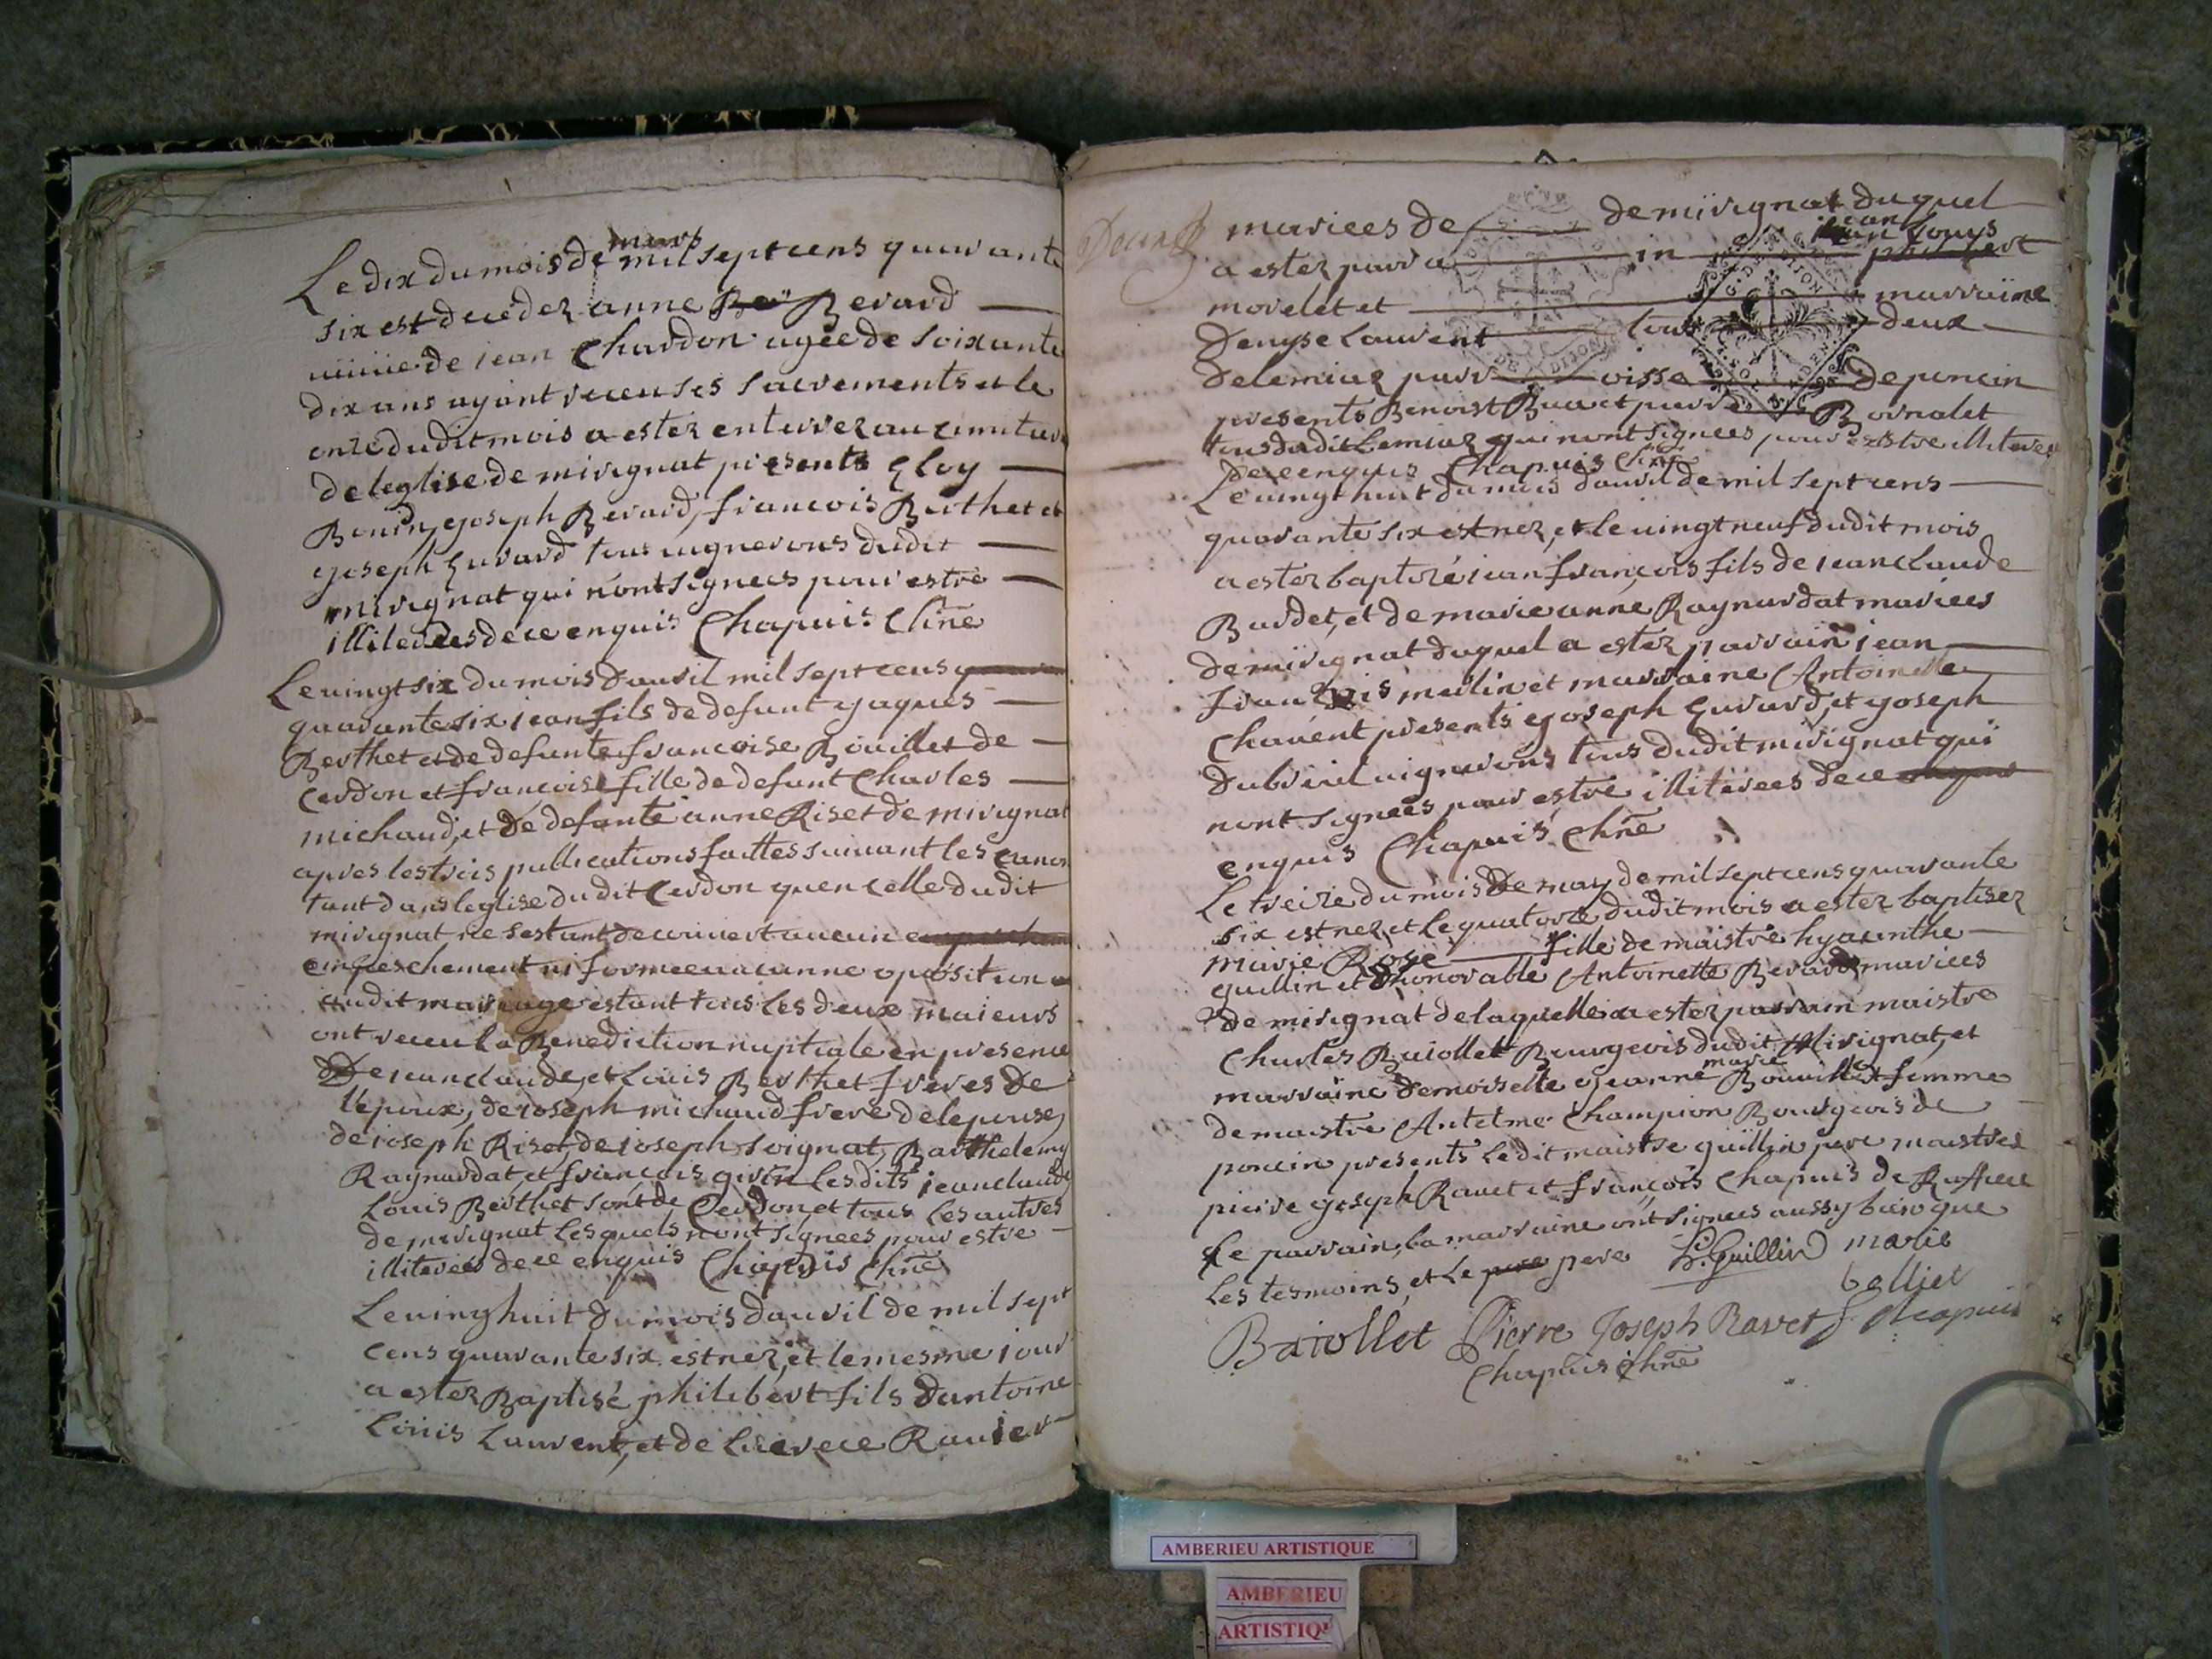 mars
Le dix du mois de mil sept cens quarante
six est decedez anne Berard
de jean Chardon agée de soixante
dix ans ayant receu ses sacrements et le
onze dudit mois a estez enterrez au cimitiere
de leglise de mirignat presents Eloy
Bondy, joseph Berard, francois Berthet et
joseph Eurard tous vignerons dudit
mirignat qui nont signees pour estre
illiterées de ce enquis Chapuis Chne
Le vingt six du mois davril mil sept cens
quarante six jean fils de defunt jaques
Berthet et de defunte francoise Bouillet de
Cerdon et francoise fille de defunt Charles
michaud, et de defunte anne Riset de mirignat
apres les trois publications faittes suivant les canon
tant dans leglise dudit Cerdon quen celle dudit
mirignat ne sestant decouvert aucune
empeschement ni formee aucunne oposition
audit mariage estant tous les deux maieurs
ont receu la Benediction nuptiale en presence
De jean claude, et Louis Berthet freres de
lepoux, de joseph michaud frere de lepouse,
de joseph Riset, de joseph soignat, Barthelemy
Raynardat et francois givin lesdits jean claude
Louis Berthet sont de Cerdon et tous les autres
de mirignat lesquels nont signees pour estre
illiterées de ce enquis Chapuis Chne
Le vingt huit du mois davril de mil sept
cens quarante six est nez, et le mesme jour
a estez Baptisé philibert fils dantoine
Louis Laurent, et de Lucrece Ravier
mariees de de mirignat duquel
a estez parrain jean Louys
morelet et marraine
Denyse Laurent tous deux
de lemiaz parroisse de poncin
presents Benoist Buer et pierre Bornalet
tous dudit Lemiaz qui nont signees pour estre illiterees
de ce enquis Chapuis Chne
Le vingt huit du mois davril de mil sept cens
quarante six est nez, et le vingt neuf dudit mois
a estez baptizé jean francois fils de jean claude
Burdet, et de marie anne Raynardat mariees
de mirignat duquel a estez parrain jean
francois merlin et marraine Antoinette
Chavent presents joseph Eurard, et joseph
Dubreul vignerons tous dudit mirignat qui
nont signees pour estre illiterees de ce
enquis Chapuis Chne
Le treize du mois de may de mil sept cens quarante
six est nez, et le quatorze dudit mois a estez baptisez
marie Rose fille de maistre hyacinthe
guillin et dhonorable Antoinette Berard mariees
de mirignat de laquelle a estez parrain maistre
Charles Baiollet Bourgeois dudit Mirignat, et
marie
marraine demoiselle jeanne Bouillet femme
de maistre Antelme Champion Bourgeois de
poncin presents ledit maistre guillin pere maistres
pierre joseph Ravet et francois Chapuis de Ruffieu
Le parrain, la marraine ont signees aussy bien que
les tesmoins, et le pere h. Guillin marie
bolliet
Baiollet Pierre Joseph Ravet f. Chapuis
Chapuis Chne
AMBERIEU ARTISTIQUE
AMBERIEU
ARTISTIQ